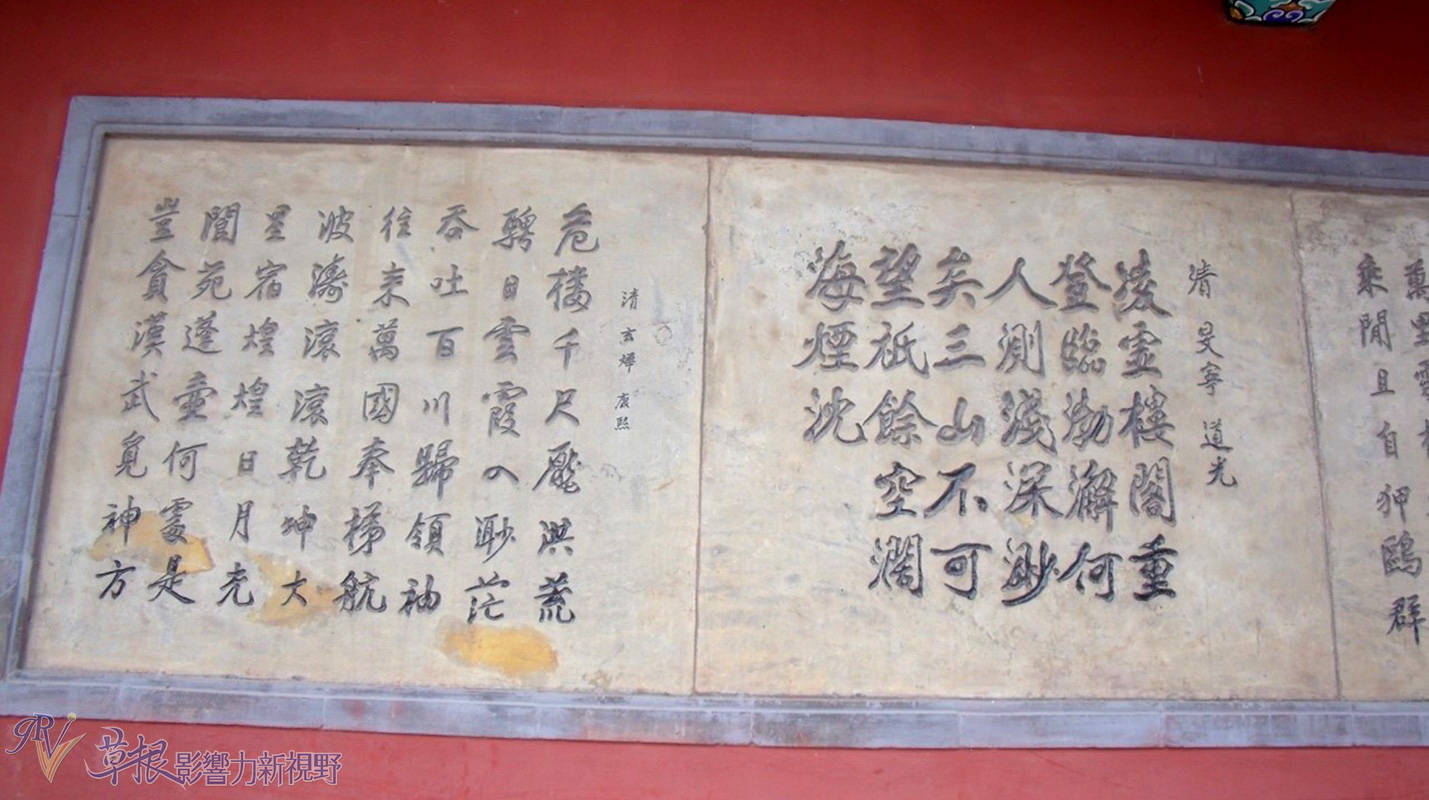 萬里雲
乘閒且自狎鷗群
清 旻寧 道光
凌虛樓閣重
登臨渤澥何
人測淺深渺
矣三山不可
望祇餘空濶
海煙沈
清 玄燁 康熙
危樓千尺壓洪荒
騁目雲霞入渺茫
吞吐百川歸領袖
往来萬國奉梯航
波濤滾滾乾坤大
星宿煌煌日月光
閬苑蓬壺何處是
豈貪漢武覓神方
草根影響力新視野